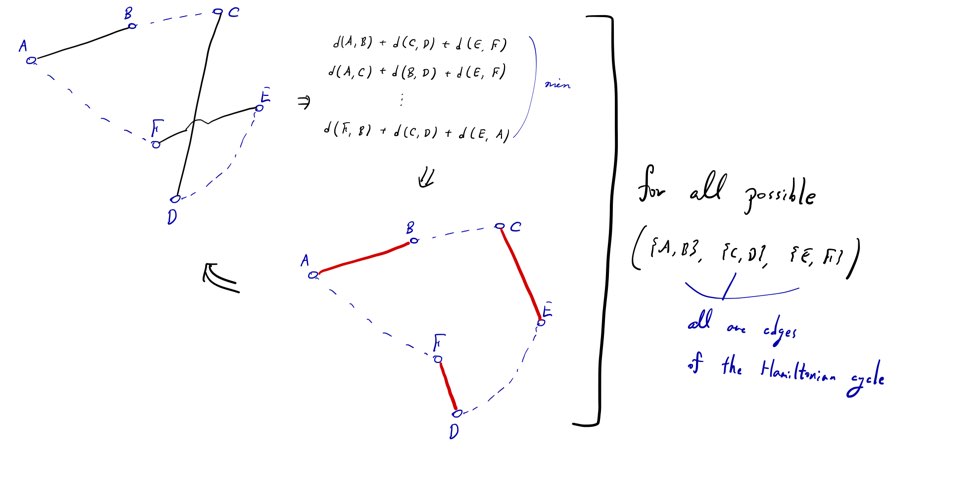 B
C
A
E
F
D
⇒
d(A,B) + d(C,D) + d(E,F)
d(A,C) + d(B,D) + d(E,F)
⋮
d(F,B) + d(C,D) + d(E,A)
min
⇓
B
C
A
E
F
D
for all possible
({A,B}, {C,D}, {E,F})
all are edges
of the Hamiltonian cycle